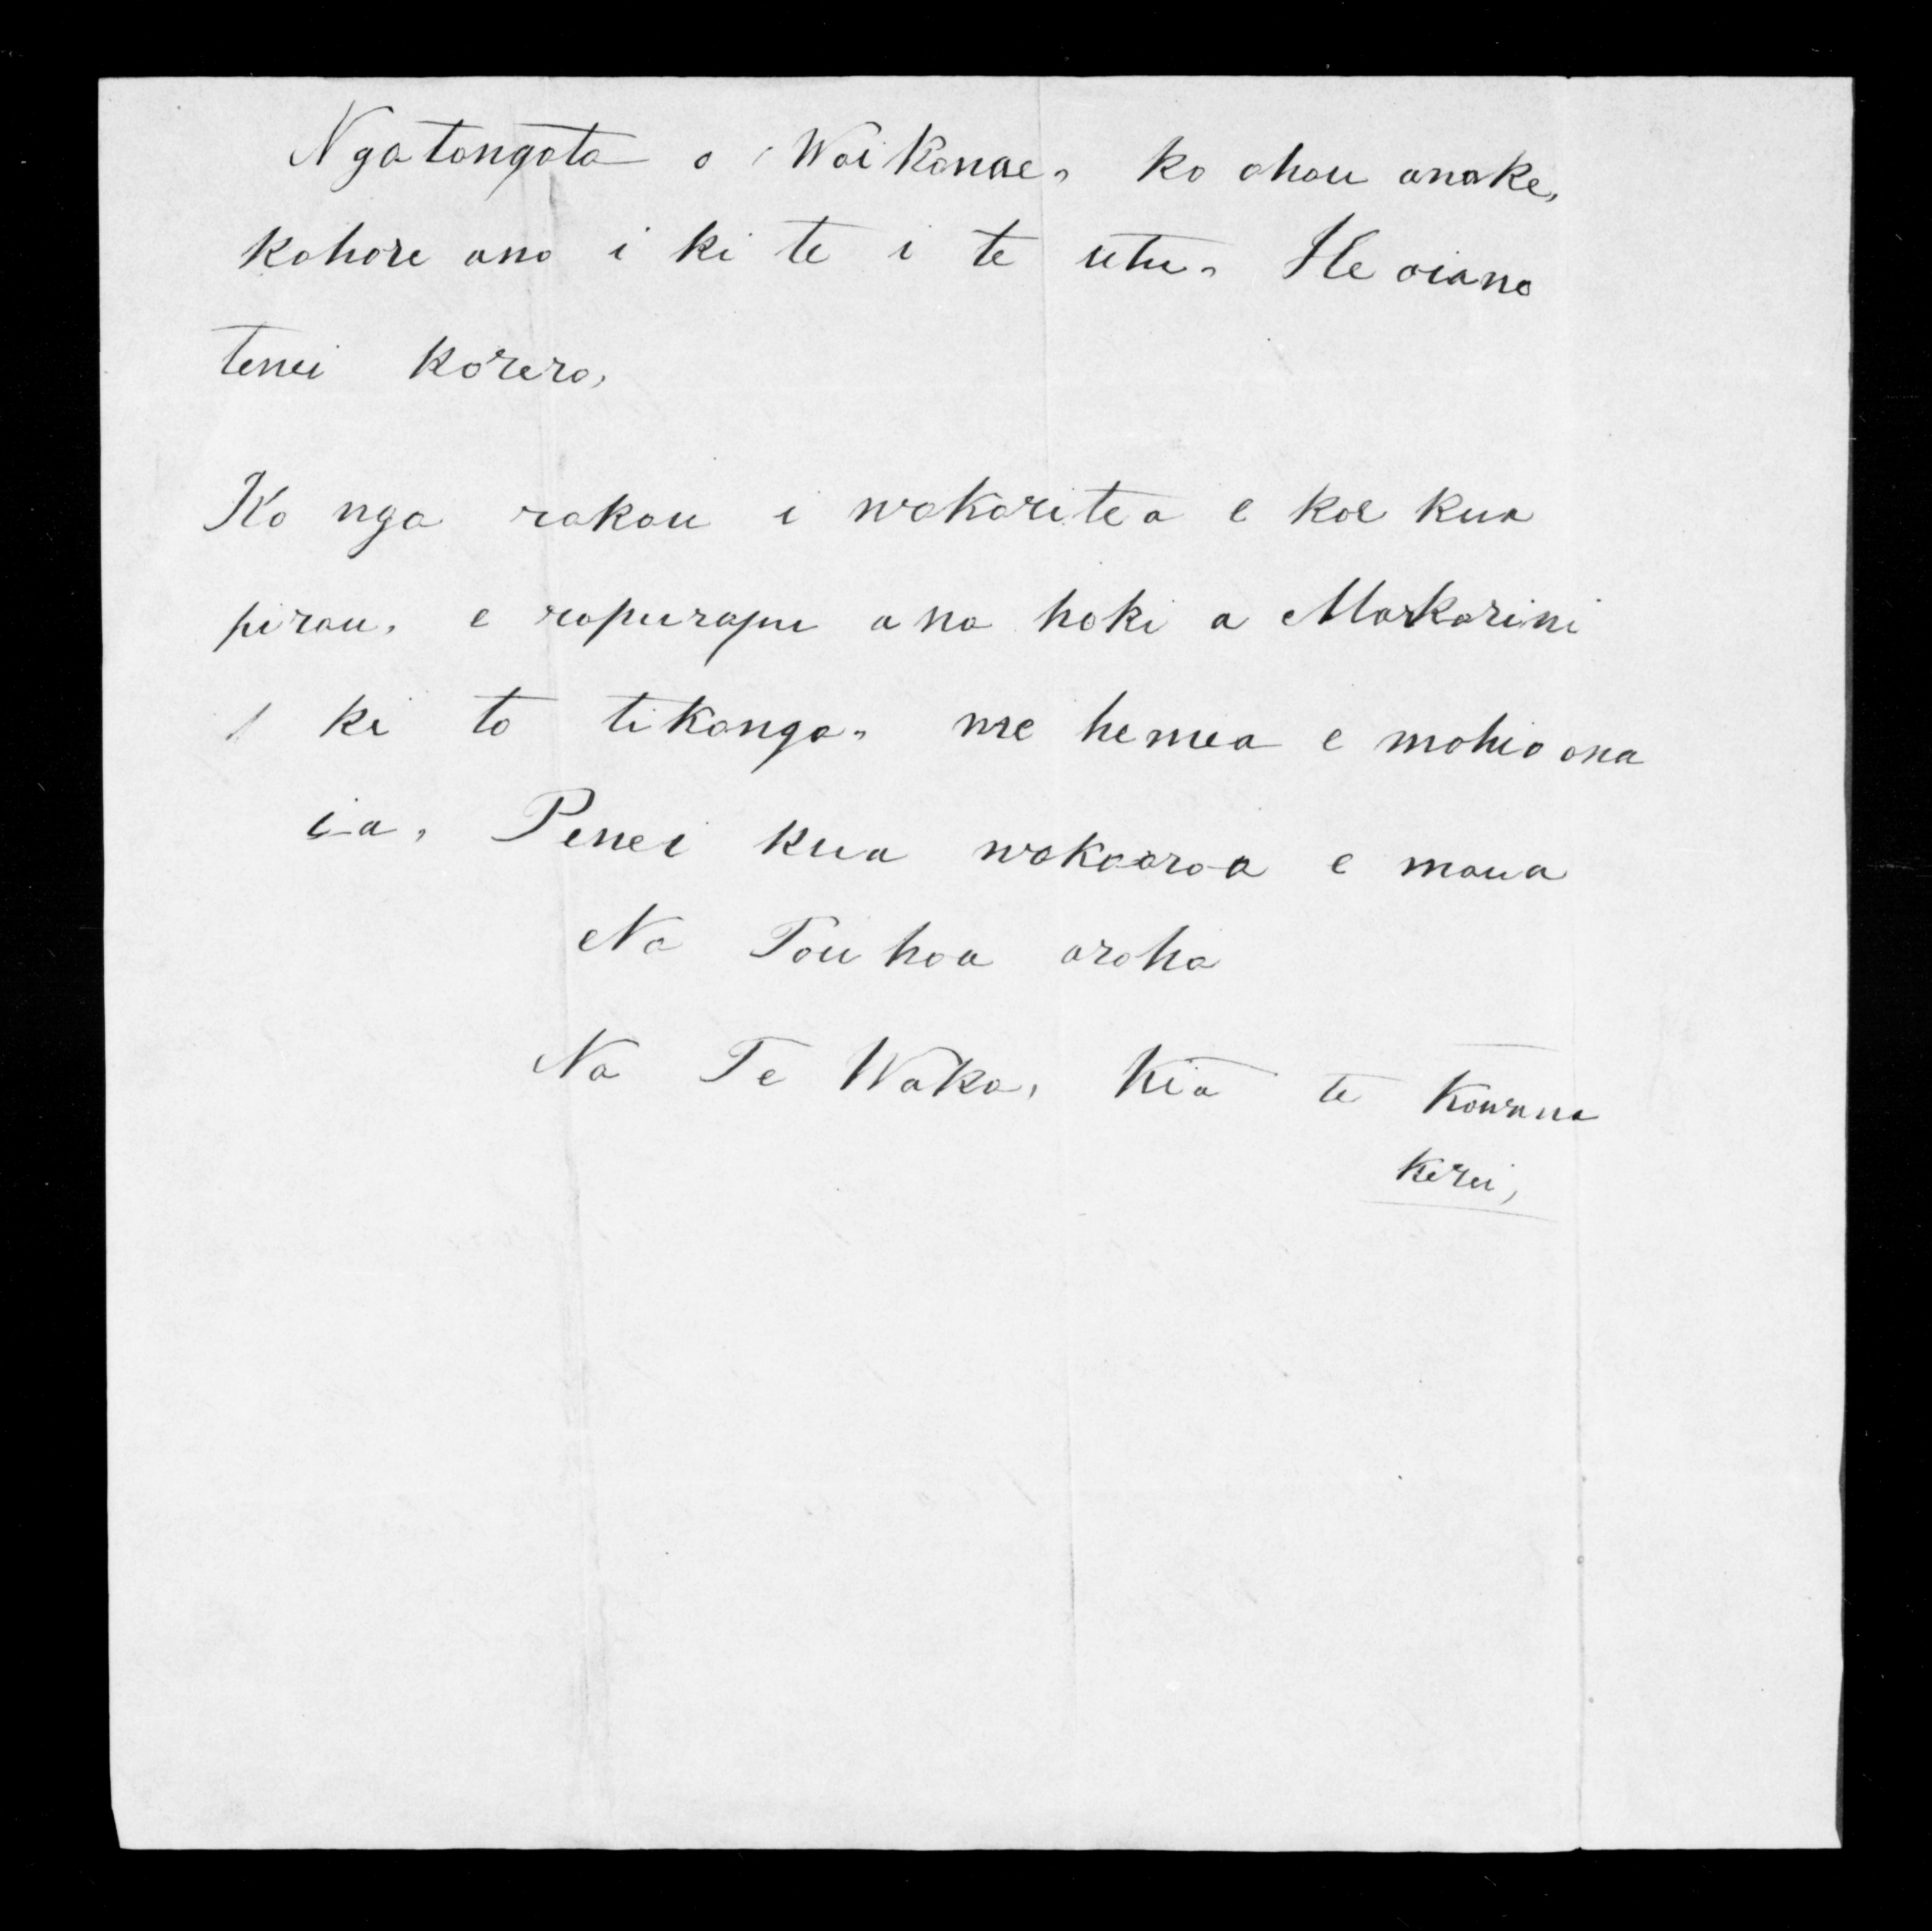 Nga tangata o Waikanae, ko ahau anake,
kahore ano i ki te i te utu. He oiano
tenei korero,
Ko nga rakau i wakaritea e koe kua
pirau, e rapurapu ana hoki a Makarini
ki to tikanga. me hemea e mohio ana
ia, Penei kua wakaaroa e maua
Na Tou hoa aroha
Na Te Waka, Kia te Kawana
Kerei,